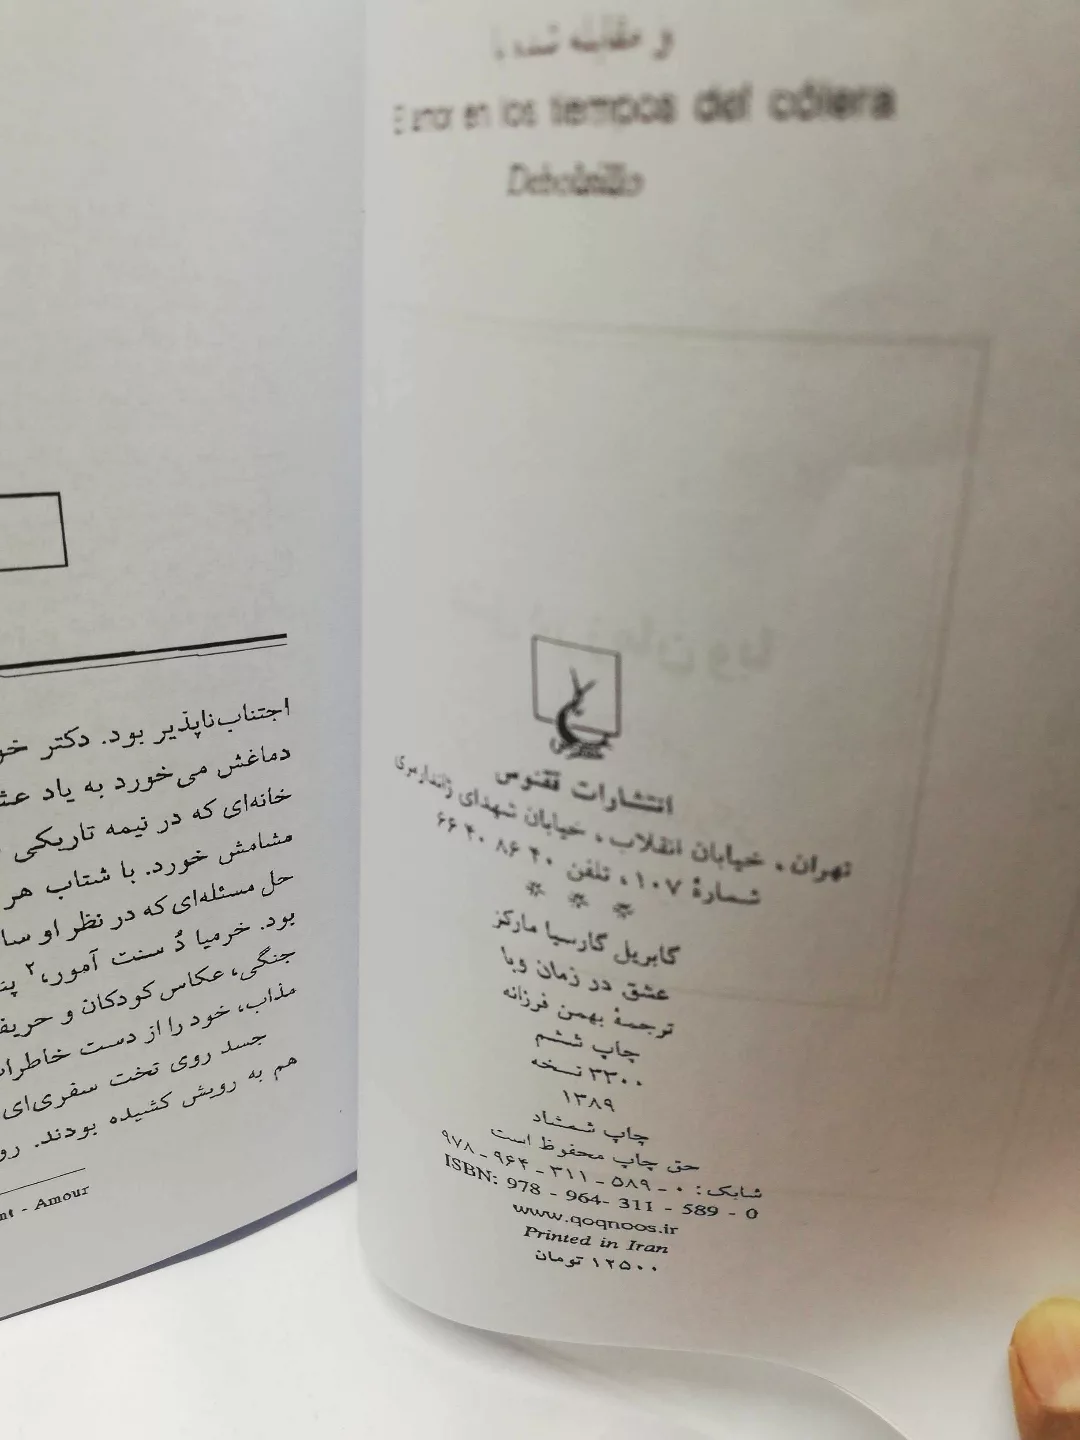 و مقابله شده با
El amor en los tiempos del cólera
Debolsillo
ققنوس
انتشارات ققنوس
تهران، خیابان انقلاب، خیابان شهدای ژاندارمری
شمارهٔ ۱۰۷، تلفن ۴۰ ۸۶ ۴۰ ۶۶
* * *
گابریل گارسیا مارکز
عشق در زمان وبا
ترجمهٔ بهمن فرزانه
چاپ ششم
۳۳۰۰ نسخه
۱۳۸۹
چاپ شمشاد
حق چاپ محفوظ است
شابک: ۰ - ۵۸۹ - ۳۱۱ - ۹۶۴ - ۹۷۸
ISBN: 978 - 964- 311 - 589 - 0
www.qoqnoos.ir
Printed in Iran
۱۲۵۰۰ تومان
اجتناب‌ناپذیر بود. دکتر
دماغش می‌خورد به یاد
خانه‌ای که در نیمه تاریکی
مشامش خورد. با شتاب هر
حل مسئله‌ای که در نظر او
بود. خرمیا دُ سنت آمور،۲
جنگی، عکاس کودکان و
مذاب، خود را از دست
جسد روی تخت سفری‌ای
هم به رویش کشیده بودند.
- Amour